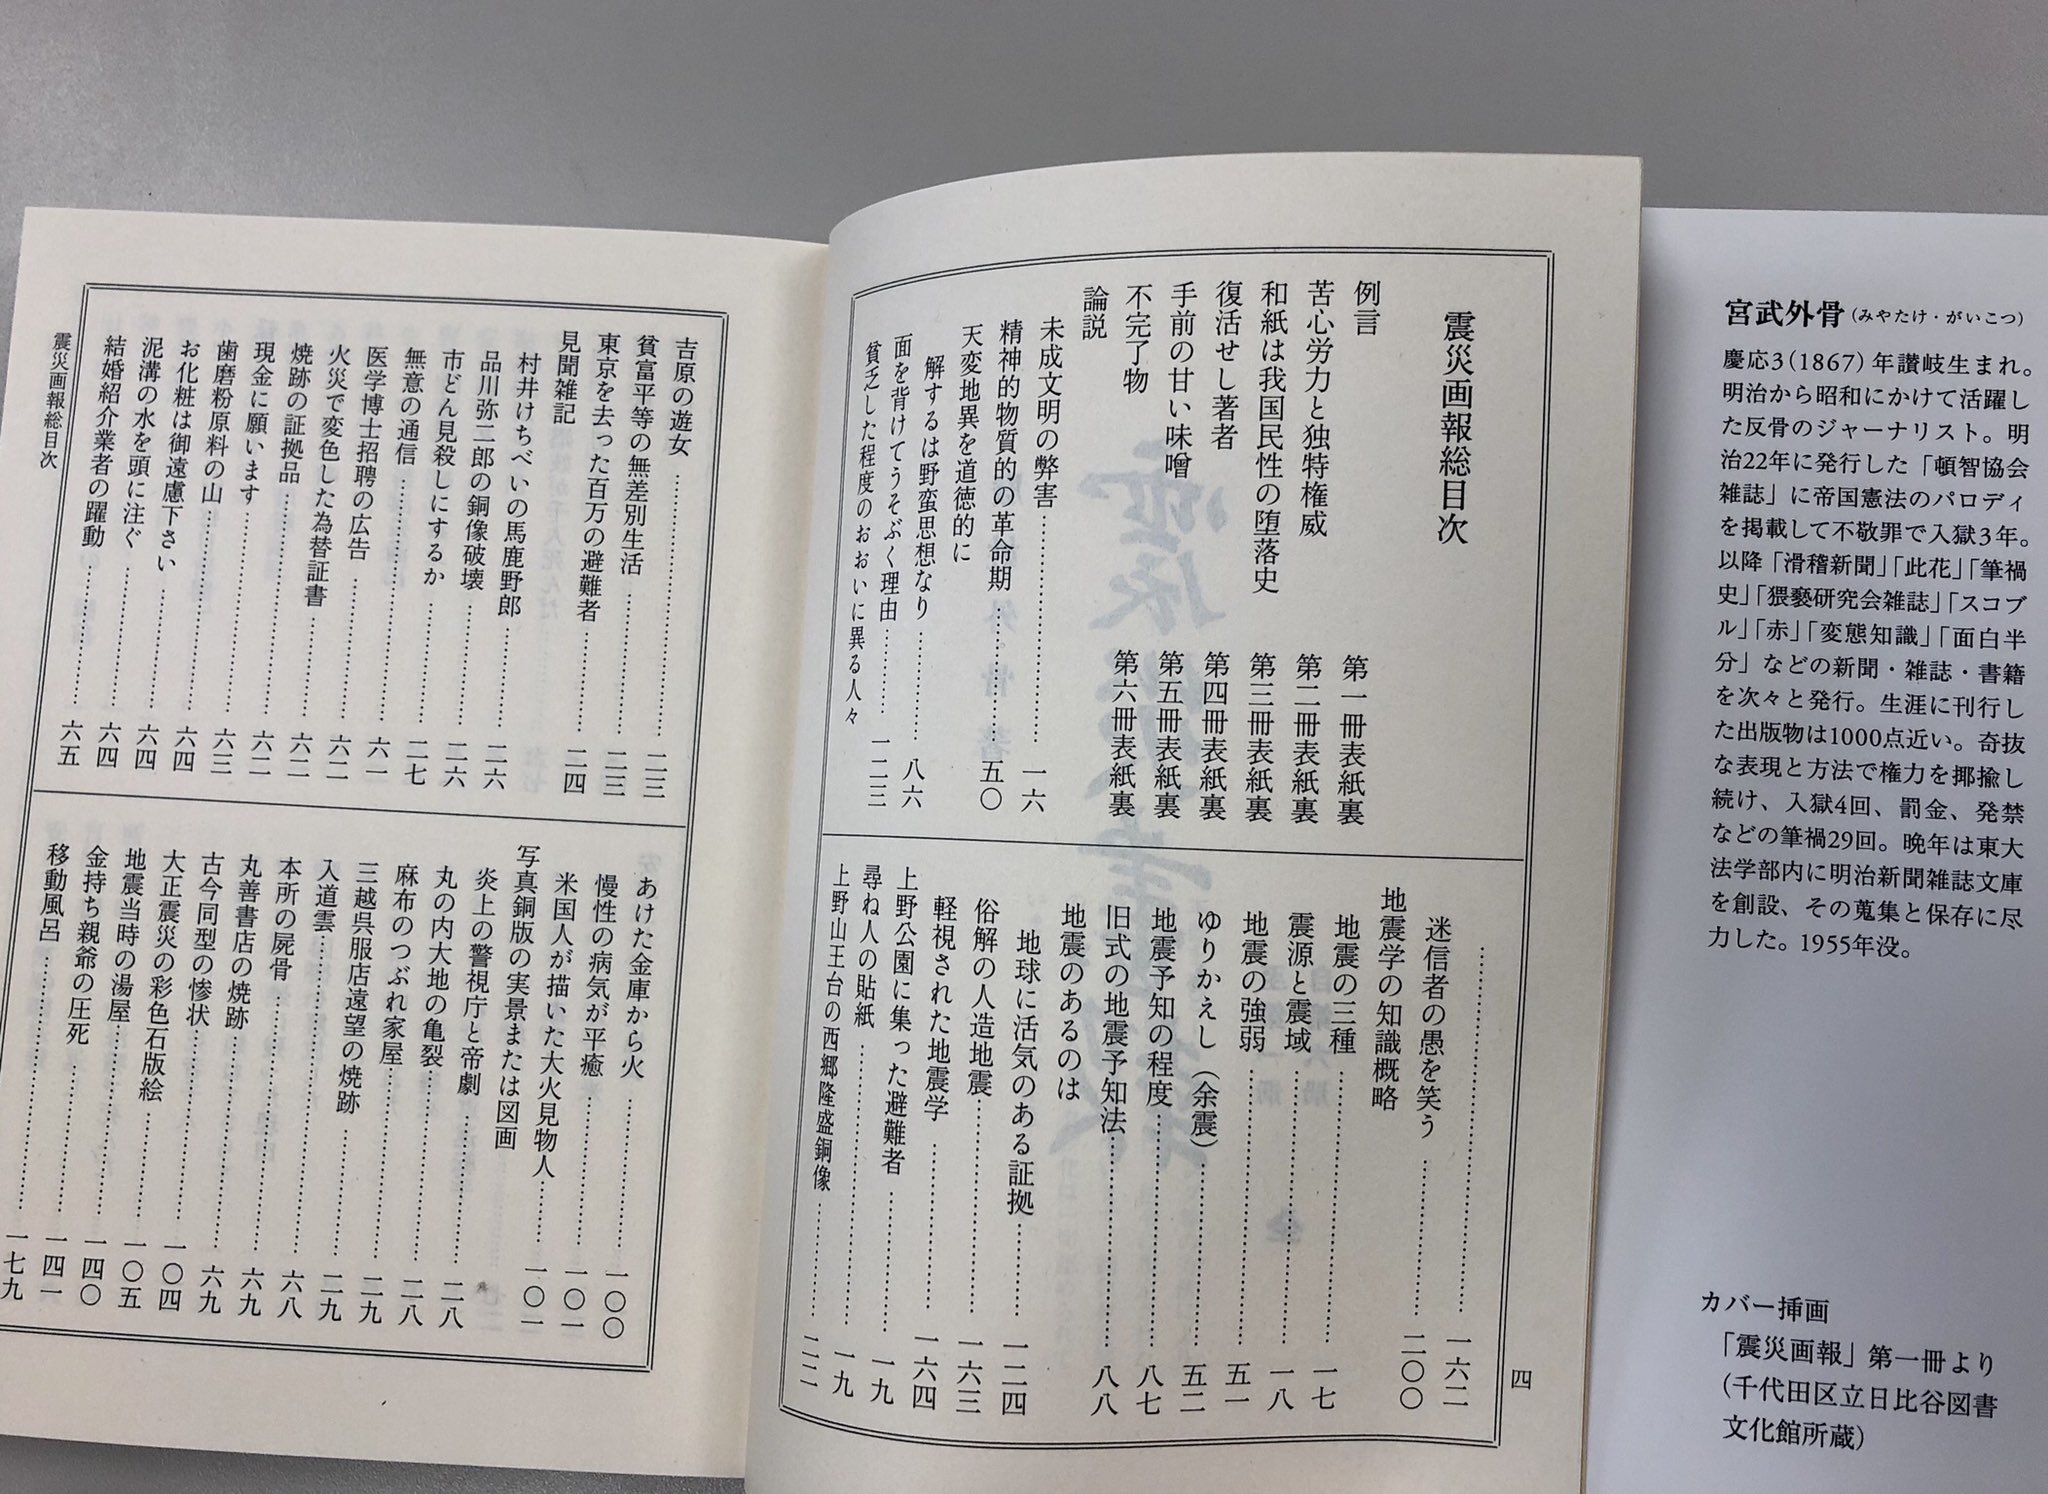 宮武外骨(みやたけ・がいこつ)
慶応3(1867)年讃岐生まれ。
明治から昭和にかけて活躍し
た反骨のジャーナリスト。明
治22年に発行した「頓智協会
雑誌」に帝国憲法のパロディ
を掲載して不敬罪で入獄3年。
以降「滑稽新聞」「此花」「筆禍
史」「猥褻研究会雑誌」「スコブ
ル」「赤」「変態知識」「面白半
分」などの新聞・雑誌・書籍
を次々と発行。生涯に刊行し
た出版物は1000点近い。奇抜
な表現と方法で権力を揶揄し
続け、入獄4回、罰金、発禁
などの筆禍29回。晩年は東大
法学部内に明治新聞雑誌文庫
を創設、その蒐集と保存に尽
力した。1955年没。
カバー挿画
「震災画報」第一冊より
(千代田区立日比谷図書
文化館所蔵)
震災画報総目次
例言 第一冊表紙裏
苦心労力と独特権威 第二冊表紙裏
和紙は我国民性の堕落史 第三冊表紙裏
復活せし著者 第四冊表紙裏
手前の甘い味噌 第五冊表紙裏
不完了物 第六冊表紙裏
論説
未成文明の弊害……一六
精神的物質的の革命期……五〇
天変地異を道徳的に
解するは野蛮思想なり……八六
面を背けてうそぶく理由……一二三
貧乏した程度のおおいに異る人々
……一六二
迷信者の愚を笑う……二〇〇
地震学の知識概略
地震の三種……一七
震源と震域……一八
地震の強弱……五一
ゆりかえし(余震)……五二
地震予知の程度……八七
旧式の地震予知法……八八
地震のあるのは
地球に活気のある証拠……一二四
俗解の人造地震……一六三
軽視された地震学……一六四
上野公園に集った避難者……一九
尋ね人の貼紙……一九
上野山王台の西郷隆盛銅像……二二
四
吉原の遊女……二三
貧富平等の無差別生活……二三
東京を去った百万の避難者……二四
見聞雑記
村井けちべいの馬鹿野郎……二六
品川弥二郎の銅像破壊……二六
市どん見殺しにするか……二七
無意の通信……六一
医学博士招聘の広告……六二
火災で変色した為替証書……六二
焼跡の証拠品……六二
現金に願います……六三
歯磨粉原料の山……六四
お化粧は御遠慮下さい……六四
泥溝の水を頭に注ぐ……六四
結婚紹介業者の躍動……六五
あけた金庫から火……一〇〇
慢性の病気が平癒……一〇一
米国人が描いた大火見物人……一〇一
写真銅版の実景または図画
炎上の警視庁と帝劇……二八
丸の内大地の亀裂……二八
麻布のつぶれ家屋……二九
三越呉服店遠望の焼跡……二九
入道雲……六八
本所の屍骨……六九
丸善書店の焼跡……六九
古今同型の惨状……一〇四
大正震災の彩色石版絵……一〇五
地震当時の湯屋……一四〇
金持ち親爺の圧死……一四一
移動風呂……一七九
震災画報総目次